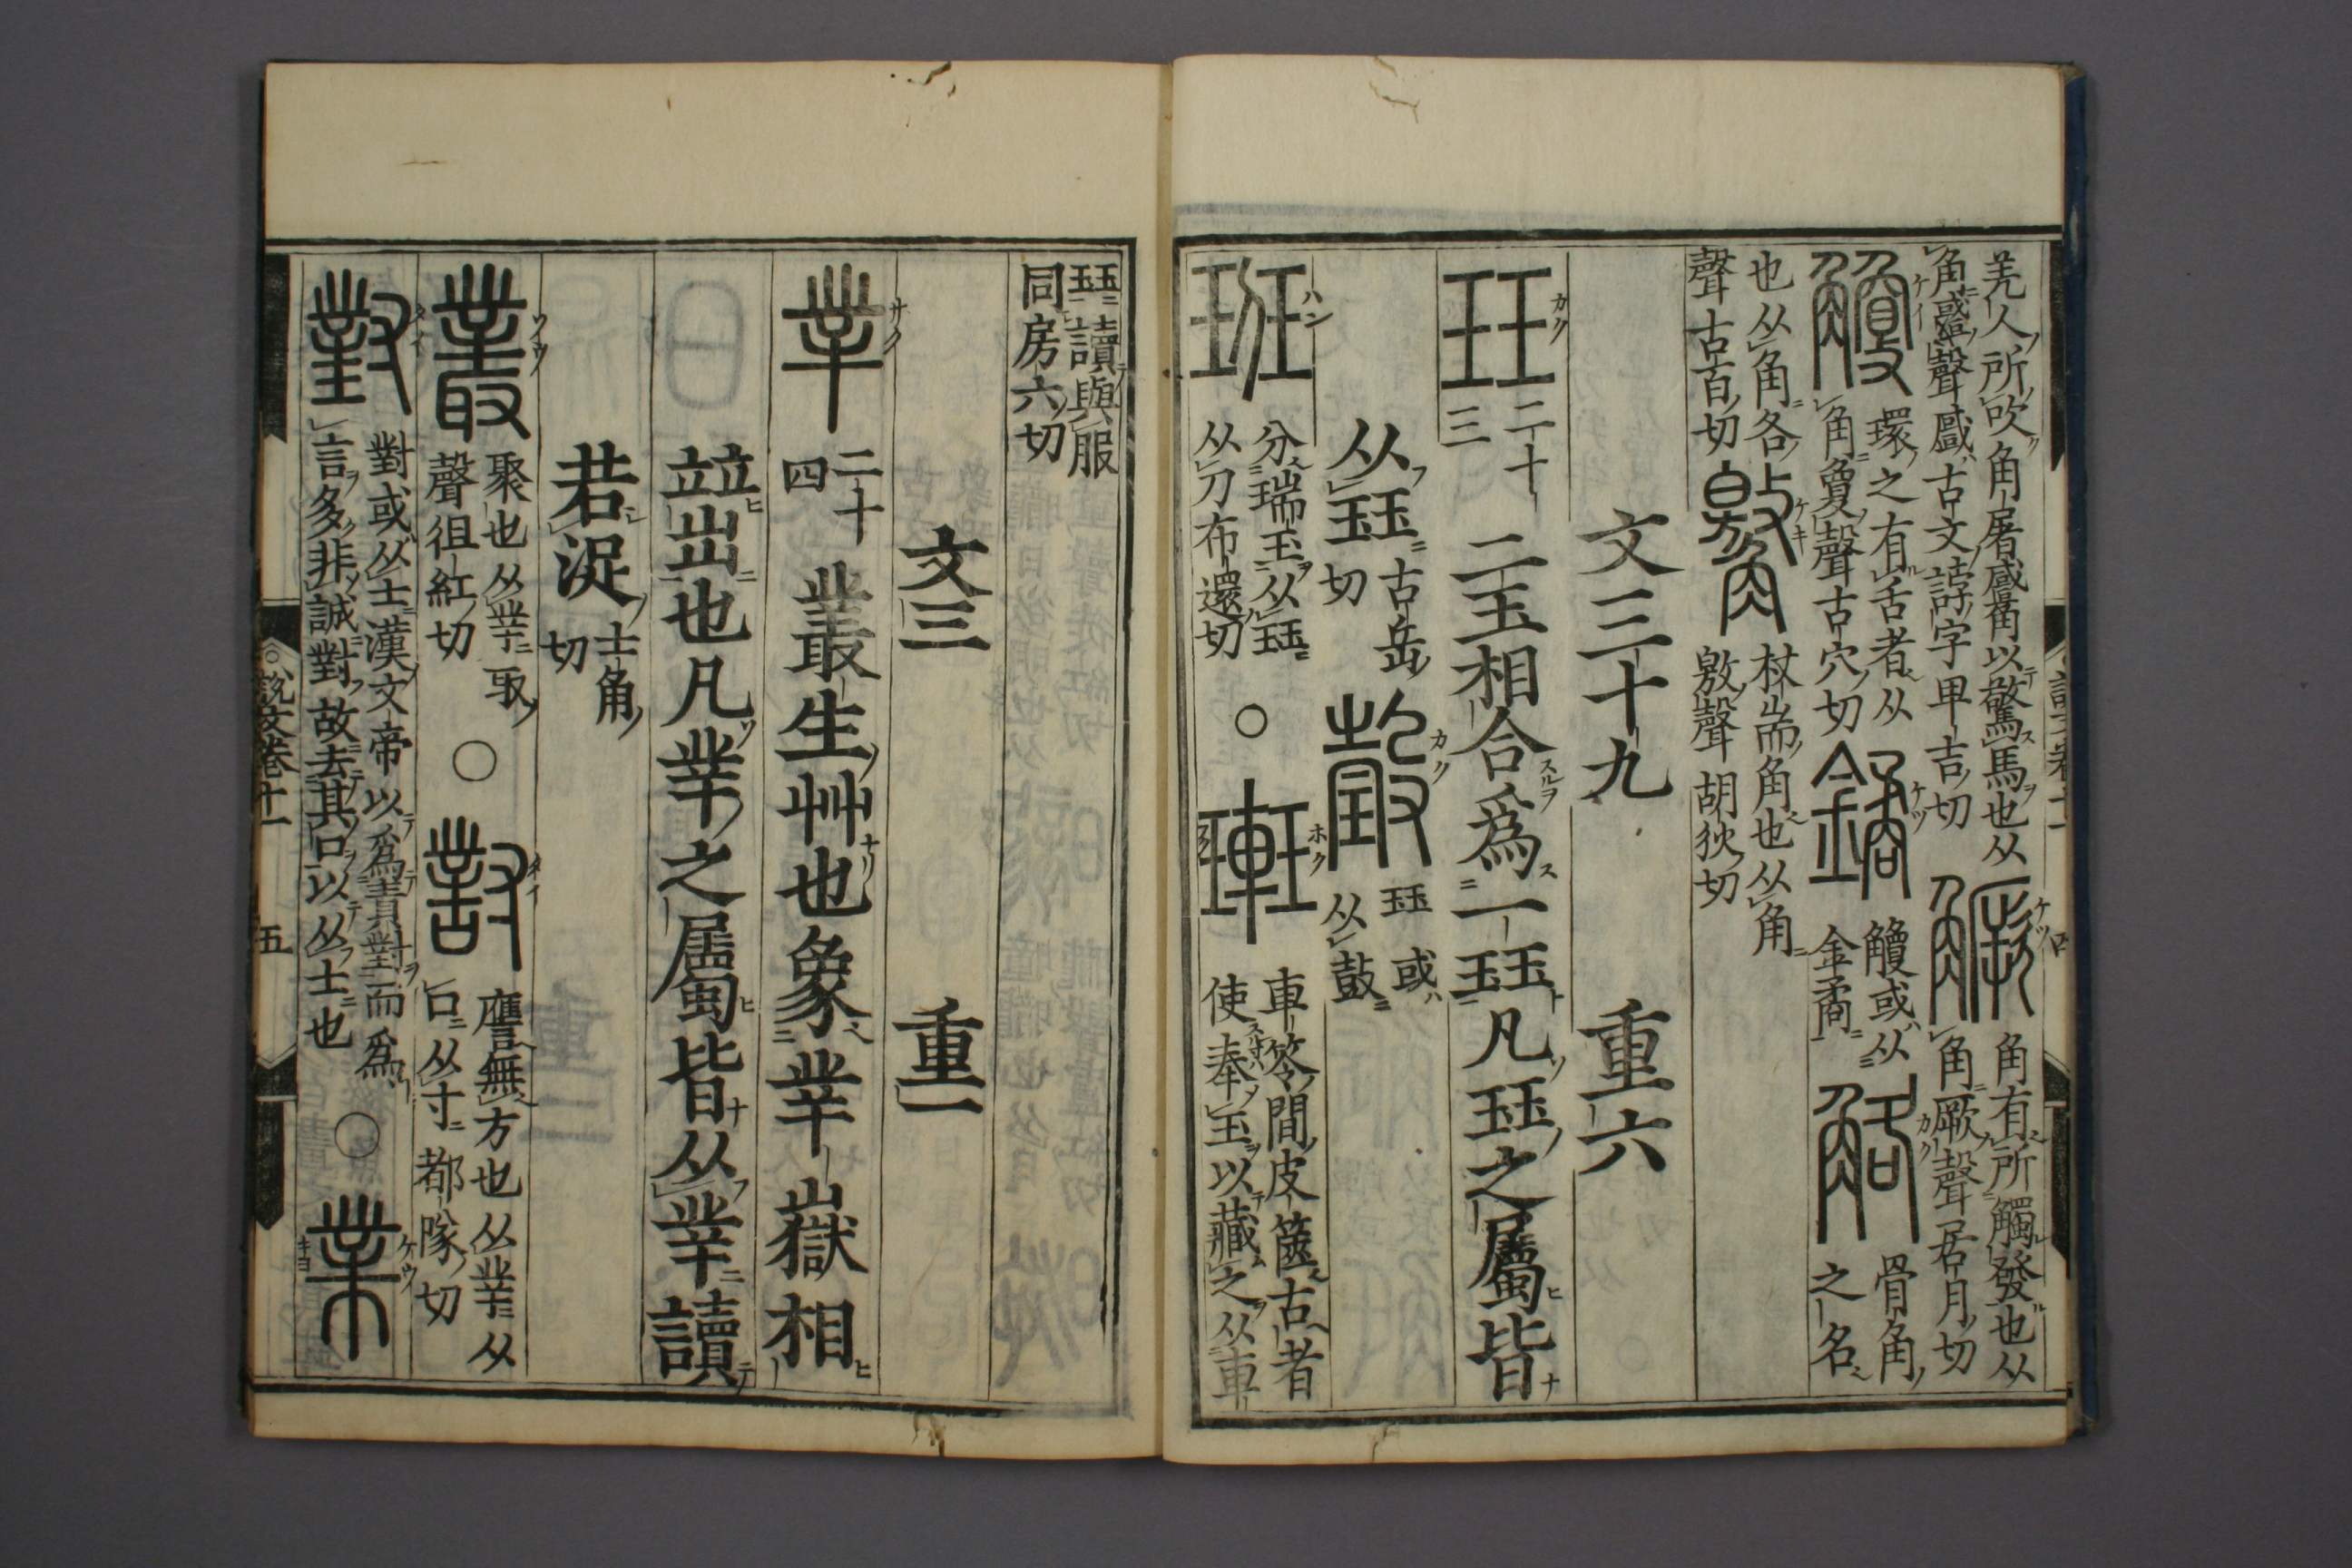 羌人所吹角屠觱以驚馬也从
角𧯇聲𧯇古文誖字卑吉切
𧤼
角有所觸發也从
角厥聲居月切
觼
環之有舌者从
角夐聲古穴切
鐍
觼或从
金矞
觡
骨角
之名
也从角各
聲古百切
觻
杖耑角也从角
敫聲胡狄切
文三十九 重六
玨 二十三 二玉相合爲一玨凡玨之屬皆
从玨 古岳切
瑴
玨或
从㱿
班
分瑞玉从玨
从刀布還切
○
車笭間皮篋古者
使奉玉以藏之从車
玨讀與服
同房六切
文三 重一
丵 二十四 叢生艸也象丵嶽相
竝出也凡丵之屬皆从丵讀
若浞 士角切
叢
聚也从丵取
聲徂紅切
○
對
譍無方也从丵从
口从寸都隊切
對
對或从士漢文帝以爲責對而爲
言多非誠對故去其口以从士也
○
業
說文卷十一 五